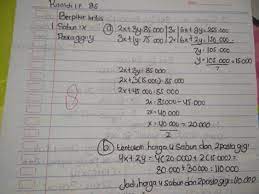 Berpikir kritis
1. Sabun: x (a) 2x + 3y: 85.000 |3x| 6x + 9y = 255.000
3x + 1y: 75.000 |2x| 6x + 2y: 150.000
7y = 105.000
y = 105.000 = 15000
7
2x + 3y = 85.000
2x + 3(15.000): 85.000
2x + 45.000: 85.000
2x: 85.000 - 45.000
2x: 40.000
x: 40.000 = 20.000
2
(b) Tentukan harga 4 Sabun dan 2 pasta gigi
4x + 2y = 4(20.000) + 2(15.000)
80.000 + 30.000: 110.000
Jadi harga 4 sabun dan 2 pasta gigi = 110.000